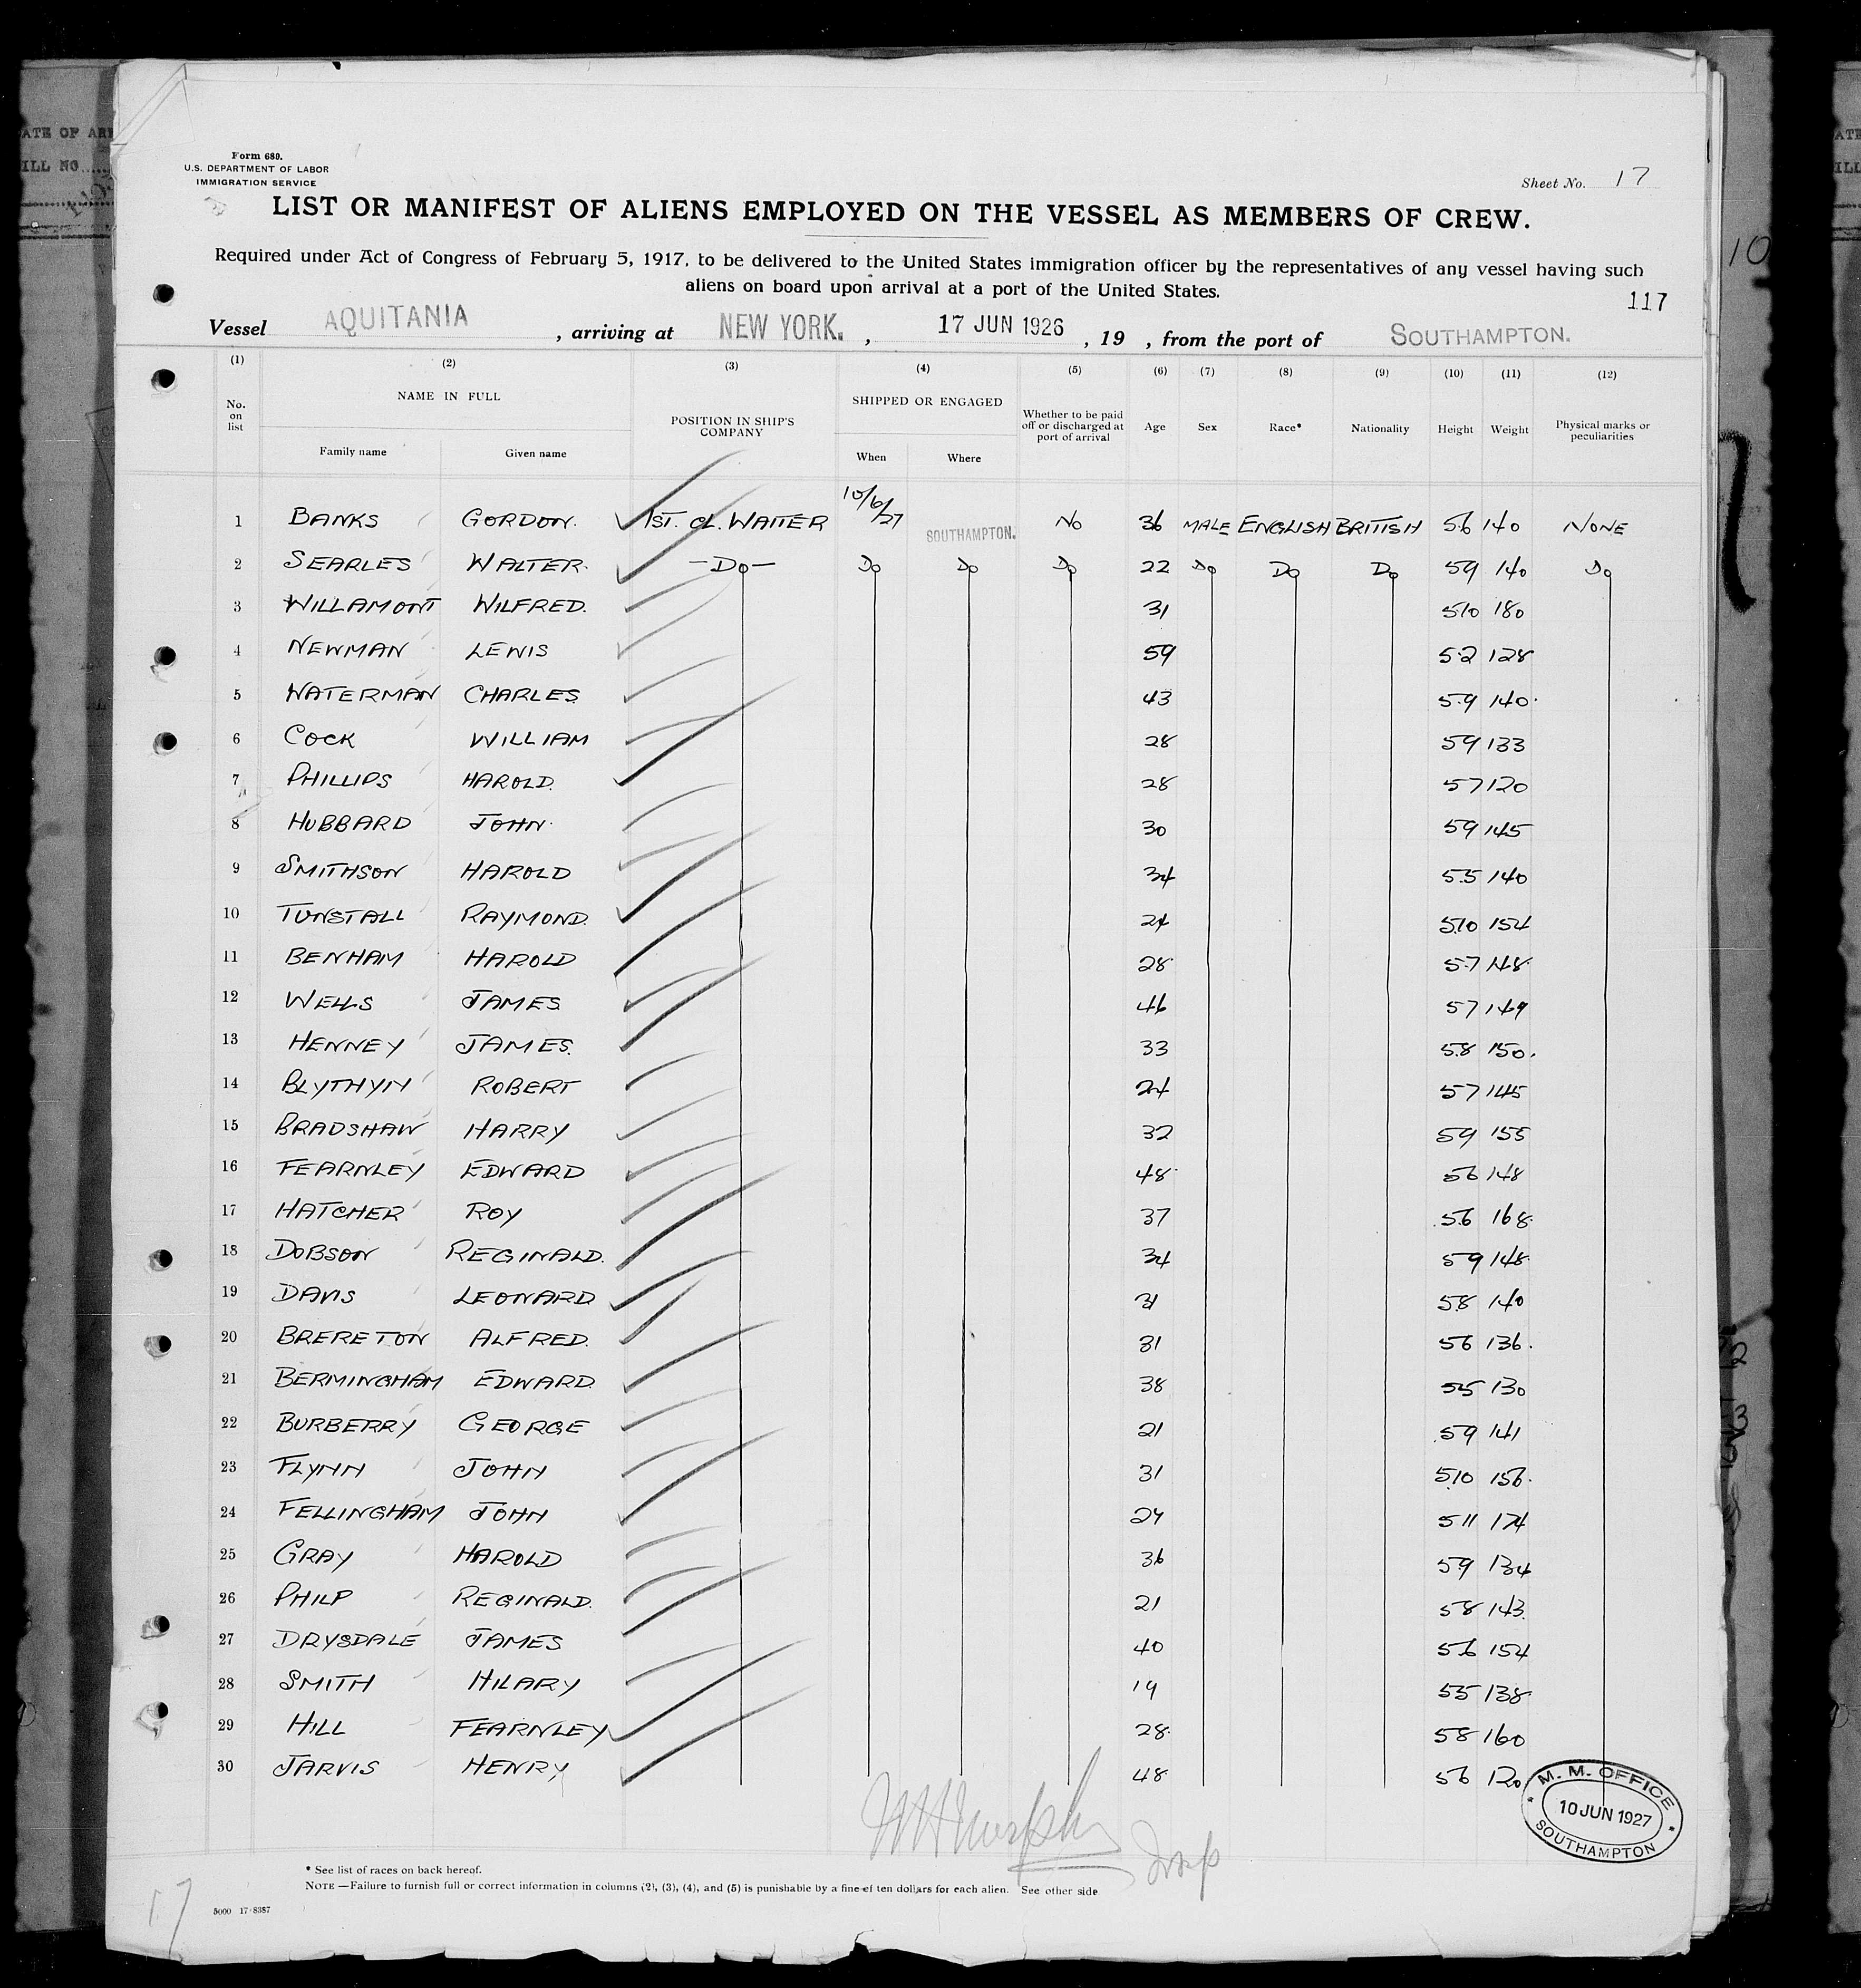 Form 680.
U.S. DEPARTMENT OF LABOR
IMMIGRATION SERVICE
Sheet No. 17
LIST OR MANIFEST OF ALIENS EMPLOYED ON THE VESSEL AS MEMBERS OF CREW.
Required under Act of Congress of February 5, 1917, to be delivered to the United States immigration officer by the representatives of any vessel having such
aliens on board upon arrival at a port of the United States.
117
Vessel AQUITANIA , arriving at NEW YORK. , 17 JUN 1926 , 19 , from the port of SOUTHAMPTON.
(1) (2) (3) (4) (5) (6) (7) (8) (9) (10) (11) (12)
No. on list NAME IN FULL Family name Given name POSITION IN SHIP'S COMPANY SHIPPED OR ENGAGED When Where Whether to be paid off or discharged at port of arrival Age Sex Race* Nationality Height Weight Physical marks or peculiarities
1 BANKS GORDON. 1ST. CL. WAITER 10/6/27 SOUTHAMPTON. NO 36 MALE ENGLISH BRITISH 5.6 140 NONE
2 SEARLES WALTER. -DO- DO DO DO 22 DO DO DO 59 140 DO
3 WILLAMONT WILFRED. 31 510 180
4 NEWMAN LEWIS 59 5.2 128
5 WATERMAN CHARLES 43 5.9 140.
6 COCK WILLIAM 28 59 133
7 PHILLIPS HAROLD. 28 57 120
8 HUBBARD JOHN. 30 59 145
9 SMITHSON HAROLD 34 5.5 140
10 TUNSTALL RAYMOND. 24 5.10 154
11 BENHAM HAROLD 28 5.7 148.
12 WELLS JAMES 46 57 149
13 HENNEY JAMES. 33 5.8 150.
14 BLYTHYN ROBERT 24 57 145
15 BRADSHAW HARRY 32 59 155
16 FEARNLEY EDWARD 48 56 148
17 HATCHER ROY 37 56 168.
18 DOBSON REGINALD. 34 59 148.
19 DAVIS LEONARD 31 58 140
20 BRERETON ALFRED. 31 56 136.
21 BERMINGHAM EDWARD. 38 55 130
22 BURBERRY GEORGE 21 59 141
23 FLYNN JOHN 31 5.10 156.
24 FELLINGHAM JOHN 511 174
25 GRAY HAROLD 36 5.9 134
26 PHILP REGINALD. 21 58 143.
27 DRYSDALE JAMES 40 5.6 154
28 SMITH HILARY 19 55 138.
29 HILL FEARNLEY 28. 58 160
30 JARVIS HENRY 48 56 120
M. M. OFFICE
10 JUN 1927
SOUTHAMPTON
* See list of races on back hereof.
NOTE —Failure to furnish full or correct information in columns (2), (3), (4), and (5) is punishable by a fine of ten dollars for each alien. See other side
5000 17-8387
17